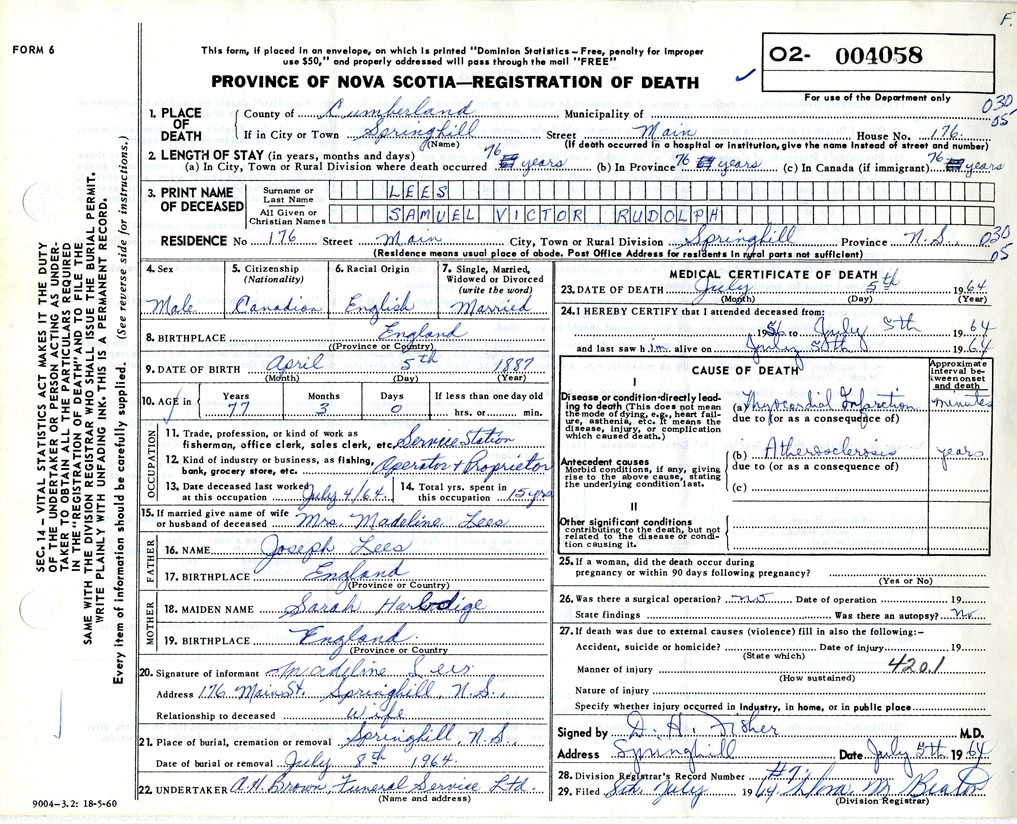 F.
FORM 6
This form, if placed in an envelope, on which is printed "Dominion Statistics – Free, penalty for improper
use $50," and properly addressed will pass through the mail "FREE"
PROVINCE OF NOVA SCOTIA—REGISTRATION OF DEATH
O2- 004058
For use of the Department only
030
05
SEC. 14 – VITAL STATISTICS ACT MAKES IT THE DUTY
OF THE UNDERTAKER OR PERSON ACTING AS UNDER-
TAKER TO OBTAIN ALL THE PARTICULARS REQUIRED
IN THE "REGISTRATION OF DEATH" AND TO FILE THE
SAME WITH THE DIVISION REGISTRAR WHO SHALL ISSUE THE BURIAL PERMIT.
WRITE PLAINLY WITH UNFADING INK. THIS IS A PERMANENT RECORD.
Every item of information should be carefully supplied. (See reverse side for instructions.)
1. PLACE OF DEATH County of Cumberland Municipality of
If in City or Town Springhill Street Main House No. 176
(Name) (If death occurred in a hospital or institution, give the name instead of street and number)
2. LENGTH OF STAY (in years, months and days)
(a) In City, Town or Rural Division where death occurred 76 years (b) In Province 76 years (c) In Canada (if immigrant) 76 years
3. PRINT NAME OF DECEASED
Surname or Last Name LEES
All Given or Christian Names SAMUEL VICTOR RUDOLPH
RESIDENCE No 176 Street Main City, Town or Rural Division Springhill Province N.S. 030
05
(Residence means usual place of abode. Post Office Address for residents in rural parts not sufficient)
4. Sex 5. Citizenship (Nationality) 6. Racial Origin 7. Single, Married, Widowed or Divorced (write the word)
Male Canadian English Married
8. BIRTHPLACE England
(Province or Country)
9. DATE OF BIRTH April 5th 1887
(Month) (Day) (Year)
10. AGE in Years Months Days If less than one day old
77 3 0 hrs. or min.
OCCUPATION
11. Trade, profession, or kind of work as
fisherman, office clerk, sales clerk, etc. Service Station
12. Kind of industry or business, as fishing,
bank, grocery store, etc. Operator + Proprietor
13. Date deceased last worked at this occupation July 4/64 14. Total yrs. spent in this occupation 15 yrs
15. If married give name of wife
or husband of deceased Mrs. Madeline Lees
FATHER
16. NAME Joseph Lees
17. BIRTHPLACE England
(Province or Country)
MOTHER
18. MAIDEN NAME Sarah
19. BIRTHPLACE England
(Province or Country
20. Signature of informant Madeline Lees
Address 176 Main St. Springhill, N.S.
Relationship to deceased Wife
21. Place of burial, cremation or removal Springhill, N.S.
Date of burial or removal July 8th 1964
22. UNDERTAKER A.H. Brown, Funeral Service Ltd
(Name and address)
9004–3.2: 18-5-60
MEDICAL CERTIFICATE OF DEATH
23. DATE OF DEATH July 5th 1964
(Month) (Day) (Year)
24. I HEREBY CERTIFY that I attended deceased from:
1956 to July 5th 1964
and last saw him alive on July 1964
CAUSE OF DEATH
Approximate interval between onset and death
I
Disease or condition directly leading to death (This does not mean the mode of dying, e.g., heart failure, asthenia, etc. It means the disease, injury, or complication which caused death.)
(a) Myocardial Infarction minutes
due to (or as a consequence of)
Antecedent causes
Morbid conditions, if any, giving rise to the above cause, stating the underlying condition last.
(b) Atherosclerosis years
due to (or as a consequence of)
(c)
II
Other significant conditions
contributing to the death, but not related to the disease or condition causing it.
25. If a woman, did the death occur during
pregnancy or within 90 days following pregnancy?
(Yes or No)
26. Was there a surgical operation? no Date of operation 19
State findings Was there an autopsy? No
27. If death was due to external causes (violence) fill in also the following:–
Accident, suicide or homicide? Date of injury 19
(State which)
Manner of injury 420.1
(How sustained)
Nature of injury
Specify whether injury occurred in industry, in home, or in public place
Signed by D. H. Fisher M.D.
Address Springhill Date July 5th 1964
28. Division Registrar's Record Number #7
29. Filed 8th July 1964 M. Beaton
(Division Registrar)